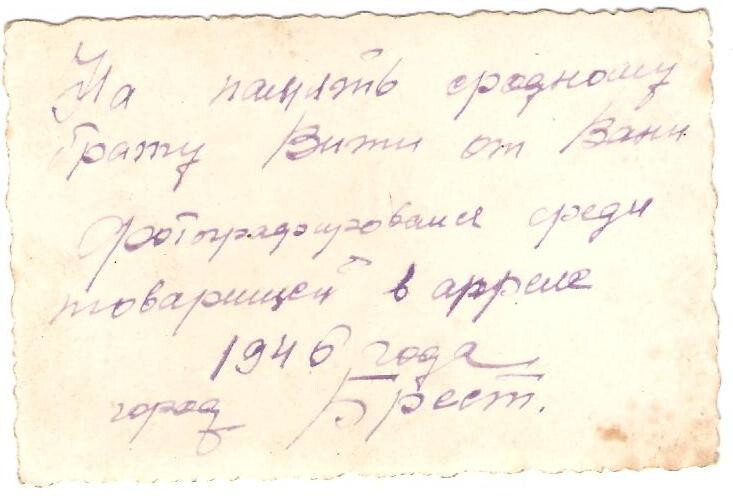 На память сродному
брату Вити от Вани
фотографировался среди
товарищей в апреле
1946 года
город Брест.